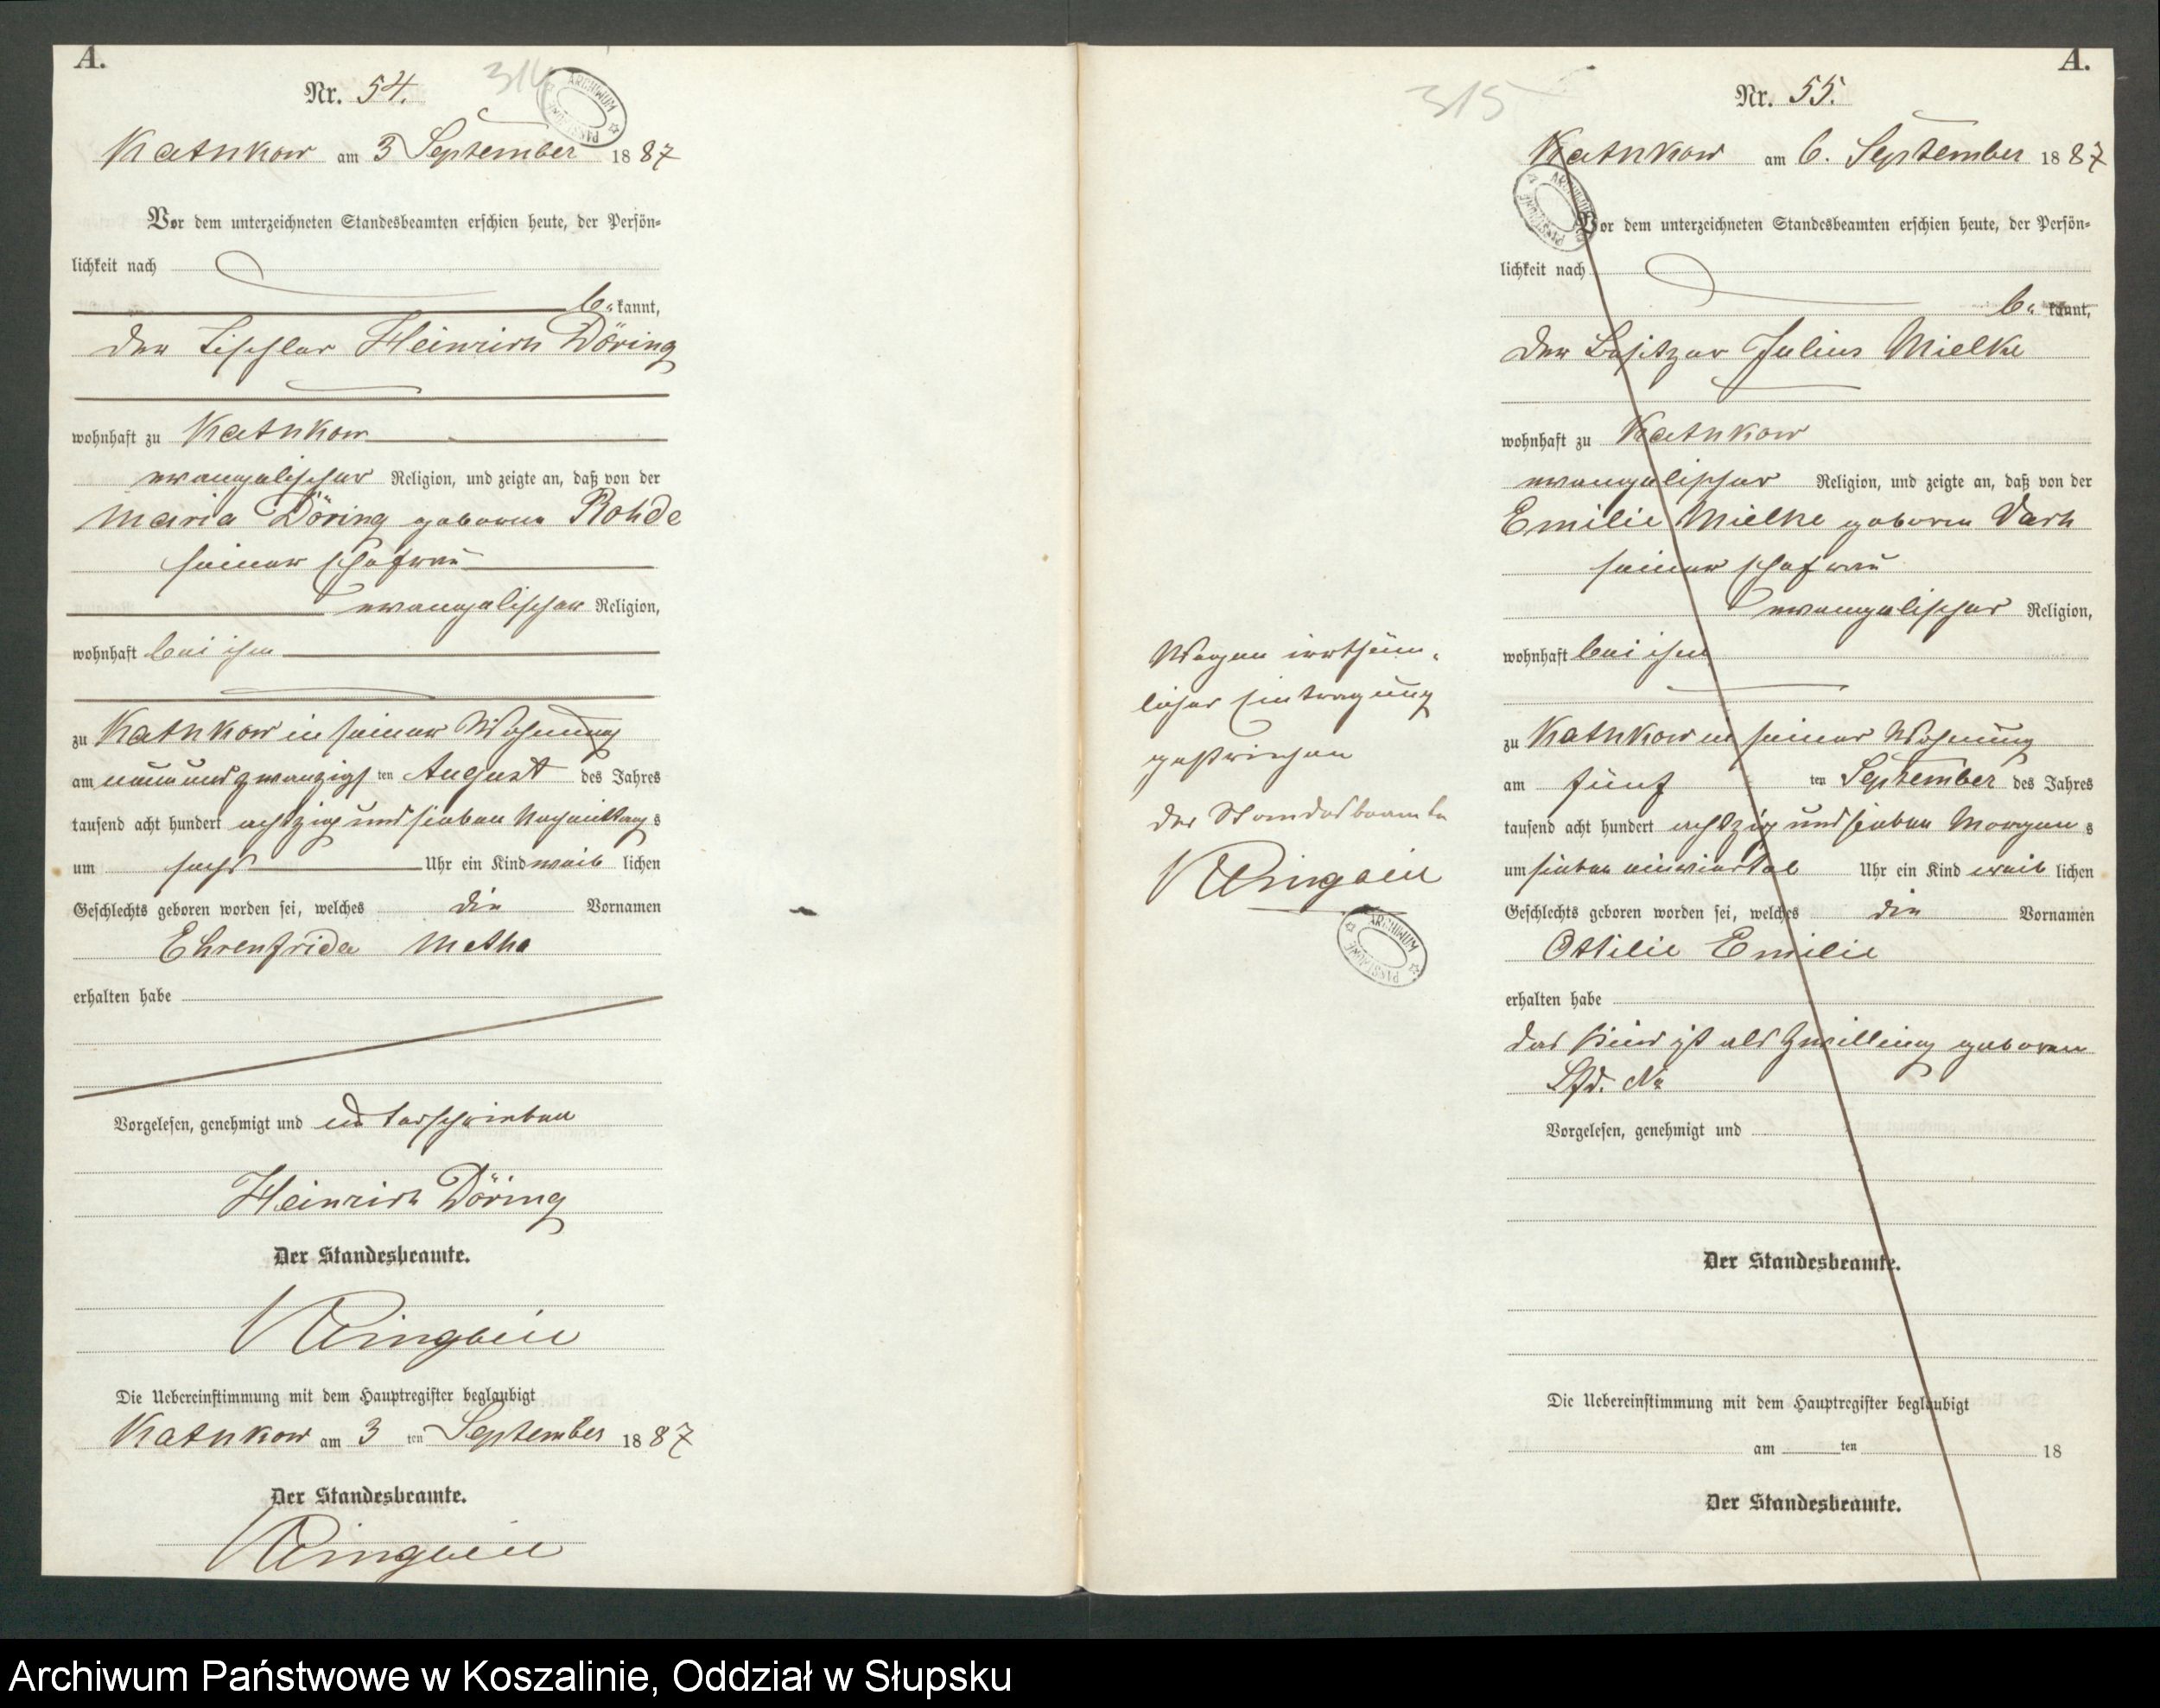 A.
Nr. 54.
314
ARCHIWUM PAŃSTWOWE
Katnkow am 3 September 1887
Vor dem unterzeichneten Standesbeamten erschien heute, der Persön-
lichkeit nach
be- kannt,
der Tischler Heinrich Döring
wohnhaft zu Katnkow
evangelischer Religion, und zeigte an, daß von der
Maria Döring geborene Rohde
seiner Ehefrau
evangelischer Religion,
wohnhaft bei ihm
zu Katnkow in seiner Wohnung
am neunundzwanzigsten August des Jahres
tausend acht hundert achtzig und sieben Nachmittags
um sechs Uhr ein Kind weiblichen
Geschlechts geboren worden sei, welches die Vornamen
Ehrenfrida Metha
erhalten habe
Vorgelesen, genehmigt und unterschrieben
Heinrich Döring
Der Standesbeamte.
Die Uebereinstimmung mit dem Hauptregister beglaubigt
Katnkow am 3 ten September 1887
Der Standesbeamte.
315
A.
Nr. 55.
Katnkow am 6. September 1887
ARCHIWUM PAŃSTWOWE
Vor dem unterzeichneten Standesbeamten erschien heute, der Persön-
lichkeit nach
be- kannt,
der Besitzer Julius Mielke
wohnhaft zu Katnkow
evangelischer Religion, und zeigte an, daß von der
Emilie Mielke geboren
seiner Ehefrau
evangelischer Religion,
wohnhaft bei ihm
zu Katnkow in seiner Wohnung
am fünften September des Jahres
tausend acht hundert achtzig und sieben Morgens
um sieben einviertel Uhr ein Kind weiblichen
Geschlechts geboren worden sei, welches die Vornamen
Ottilie Emilie
erhalten habe
das Kind ist als Zwilling geboren
Lfd. No
Vorgelesen, genehmigt und
Der Standesbeamte.
Die Uebereinstimmung mit dem Hauptregister beglaubigt
am ten 18
Der Standesbeamte.
Wegen irrthüm-
licher Eintragung
gestrichen
der Standesbeamte
ARCHIWUM PAŃSTWOWE
Archiwum Państwowe w Koszalinie, Oddział w Słupsku